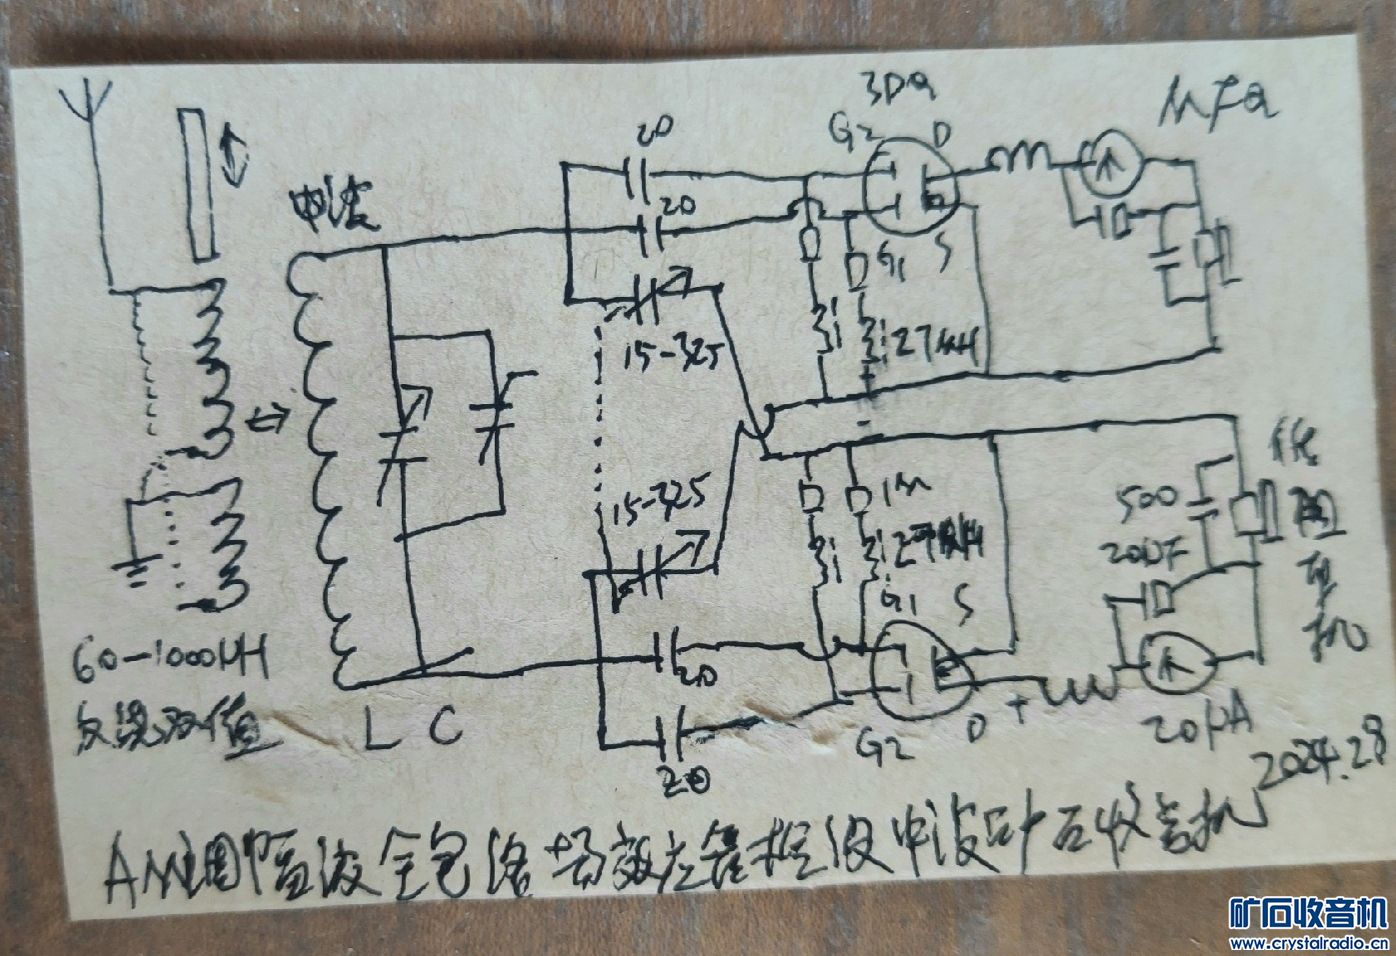 3DQ
MFQ
20
G2
D
中波
20
G1
S
15-325
27MH
15-325
1M
27MH
500
20UF
G1
S
60-1000MH
20
L C
G2
D
+
20μA
20
2024.28
AM调幅波全包络场效应管检波中波矿石收音机
矿石收音机
www.crystalradio.cn